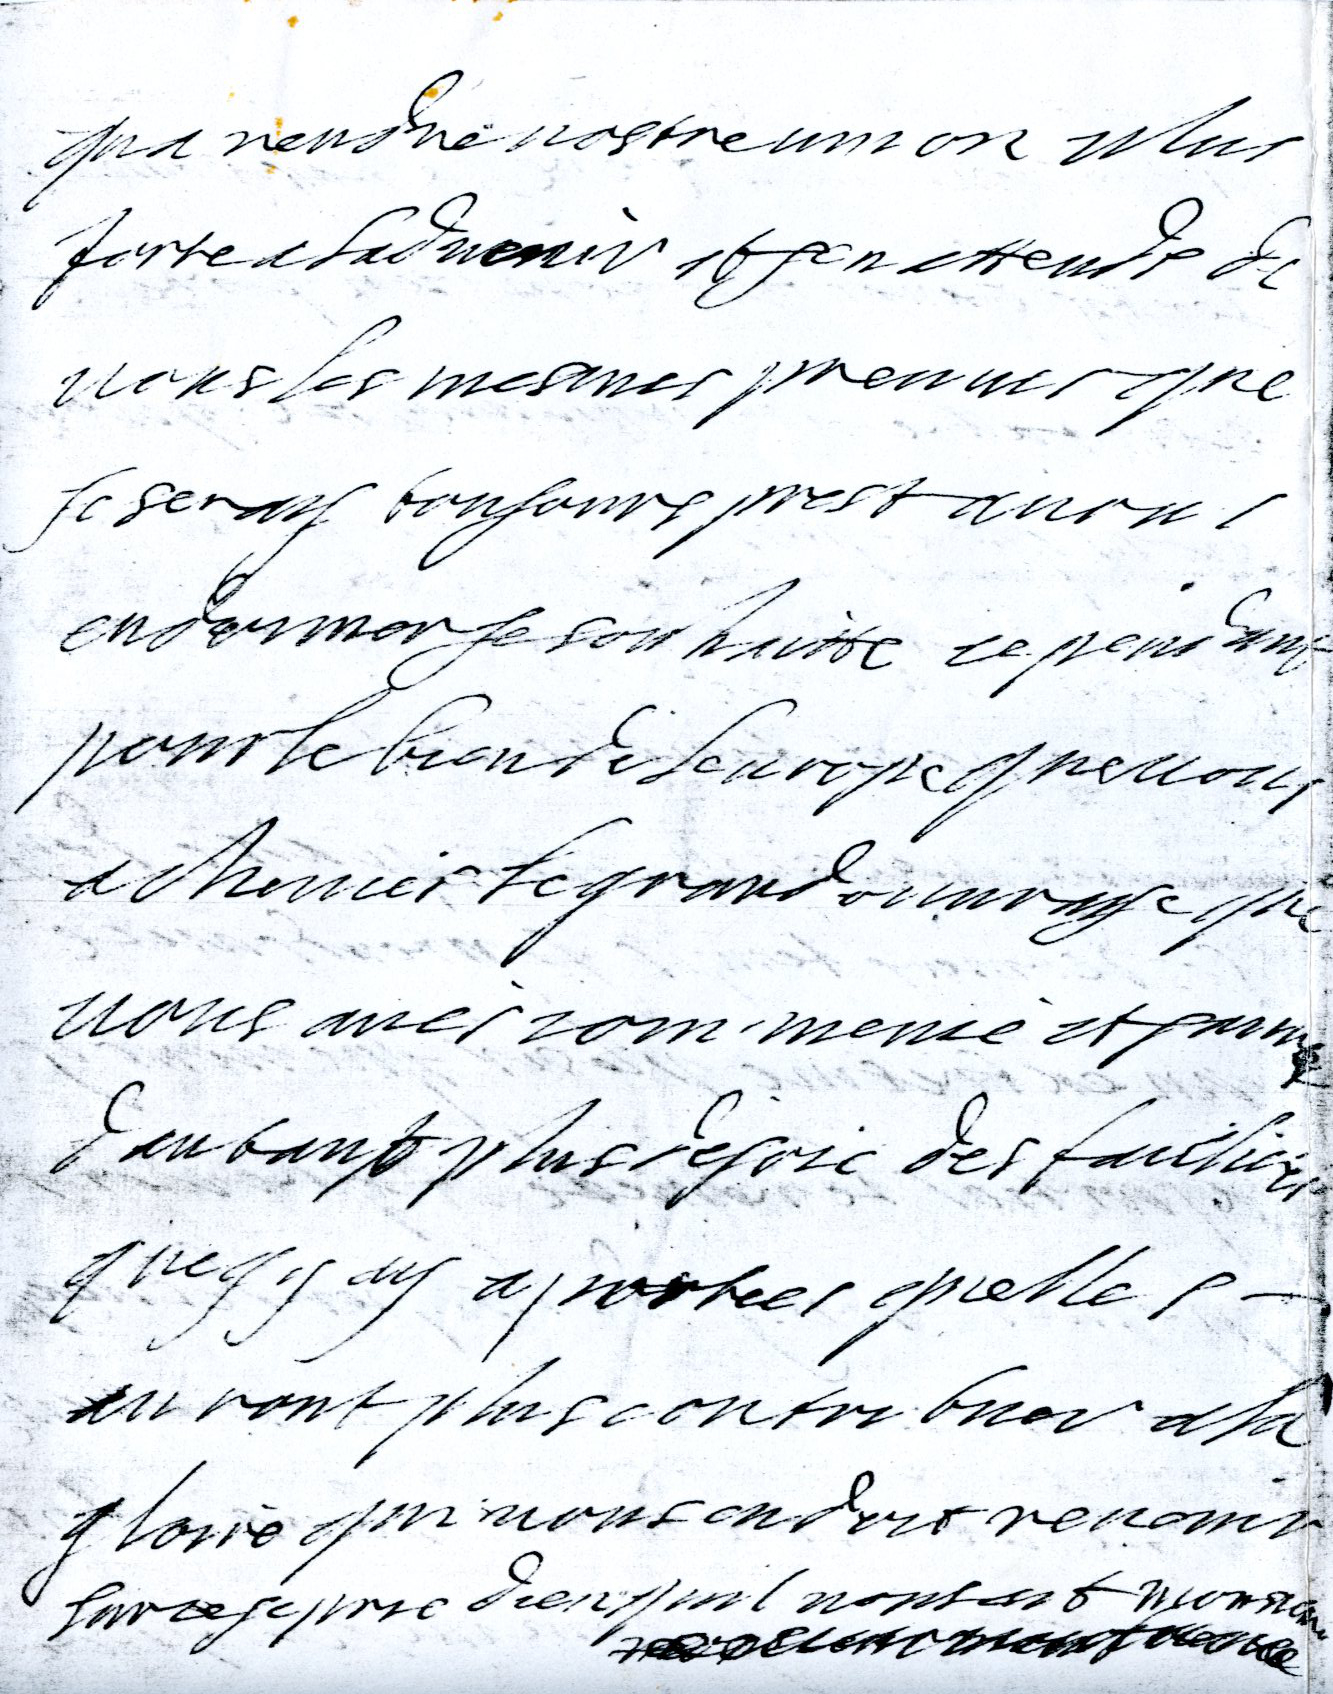 qua rendre nostre union plus
forte a ladvenir et jen attends de
vous les mesmes preuues que
je seray tousjours prest a vous
en donner je souhaitte cependant
pour le bien de leurope que vous
acheuiés le grand ouurage que
vous aués commencé et jauray
dautant plus de joie des facilités
que jy ay aportées quelles
auront plus contribuer a la
gloire qui vous en doit reuenir
sur ce je prie dieu quil vous ait Monsieur